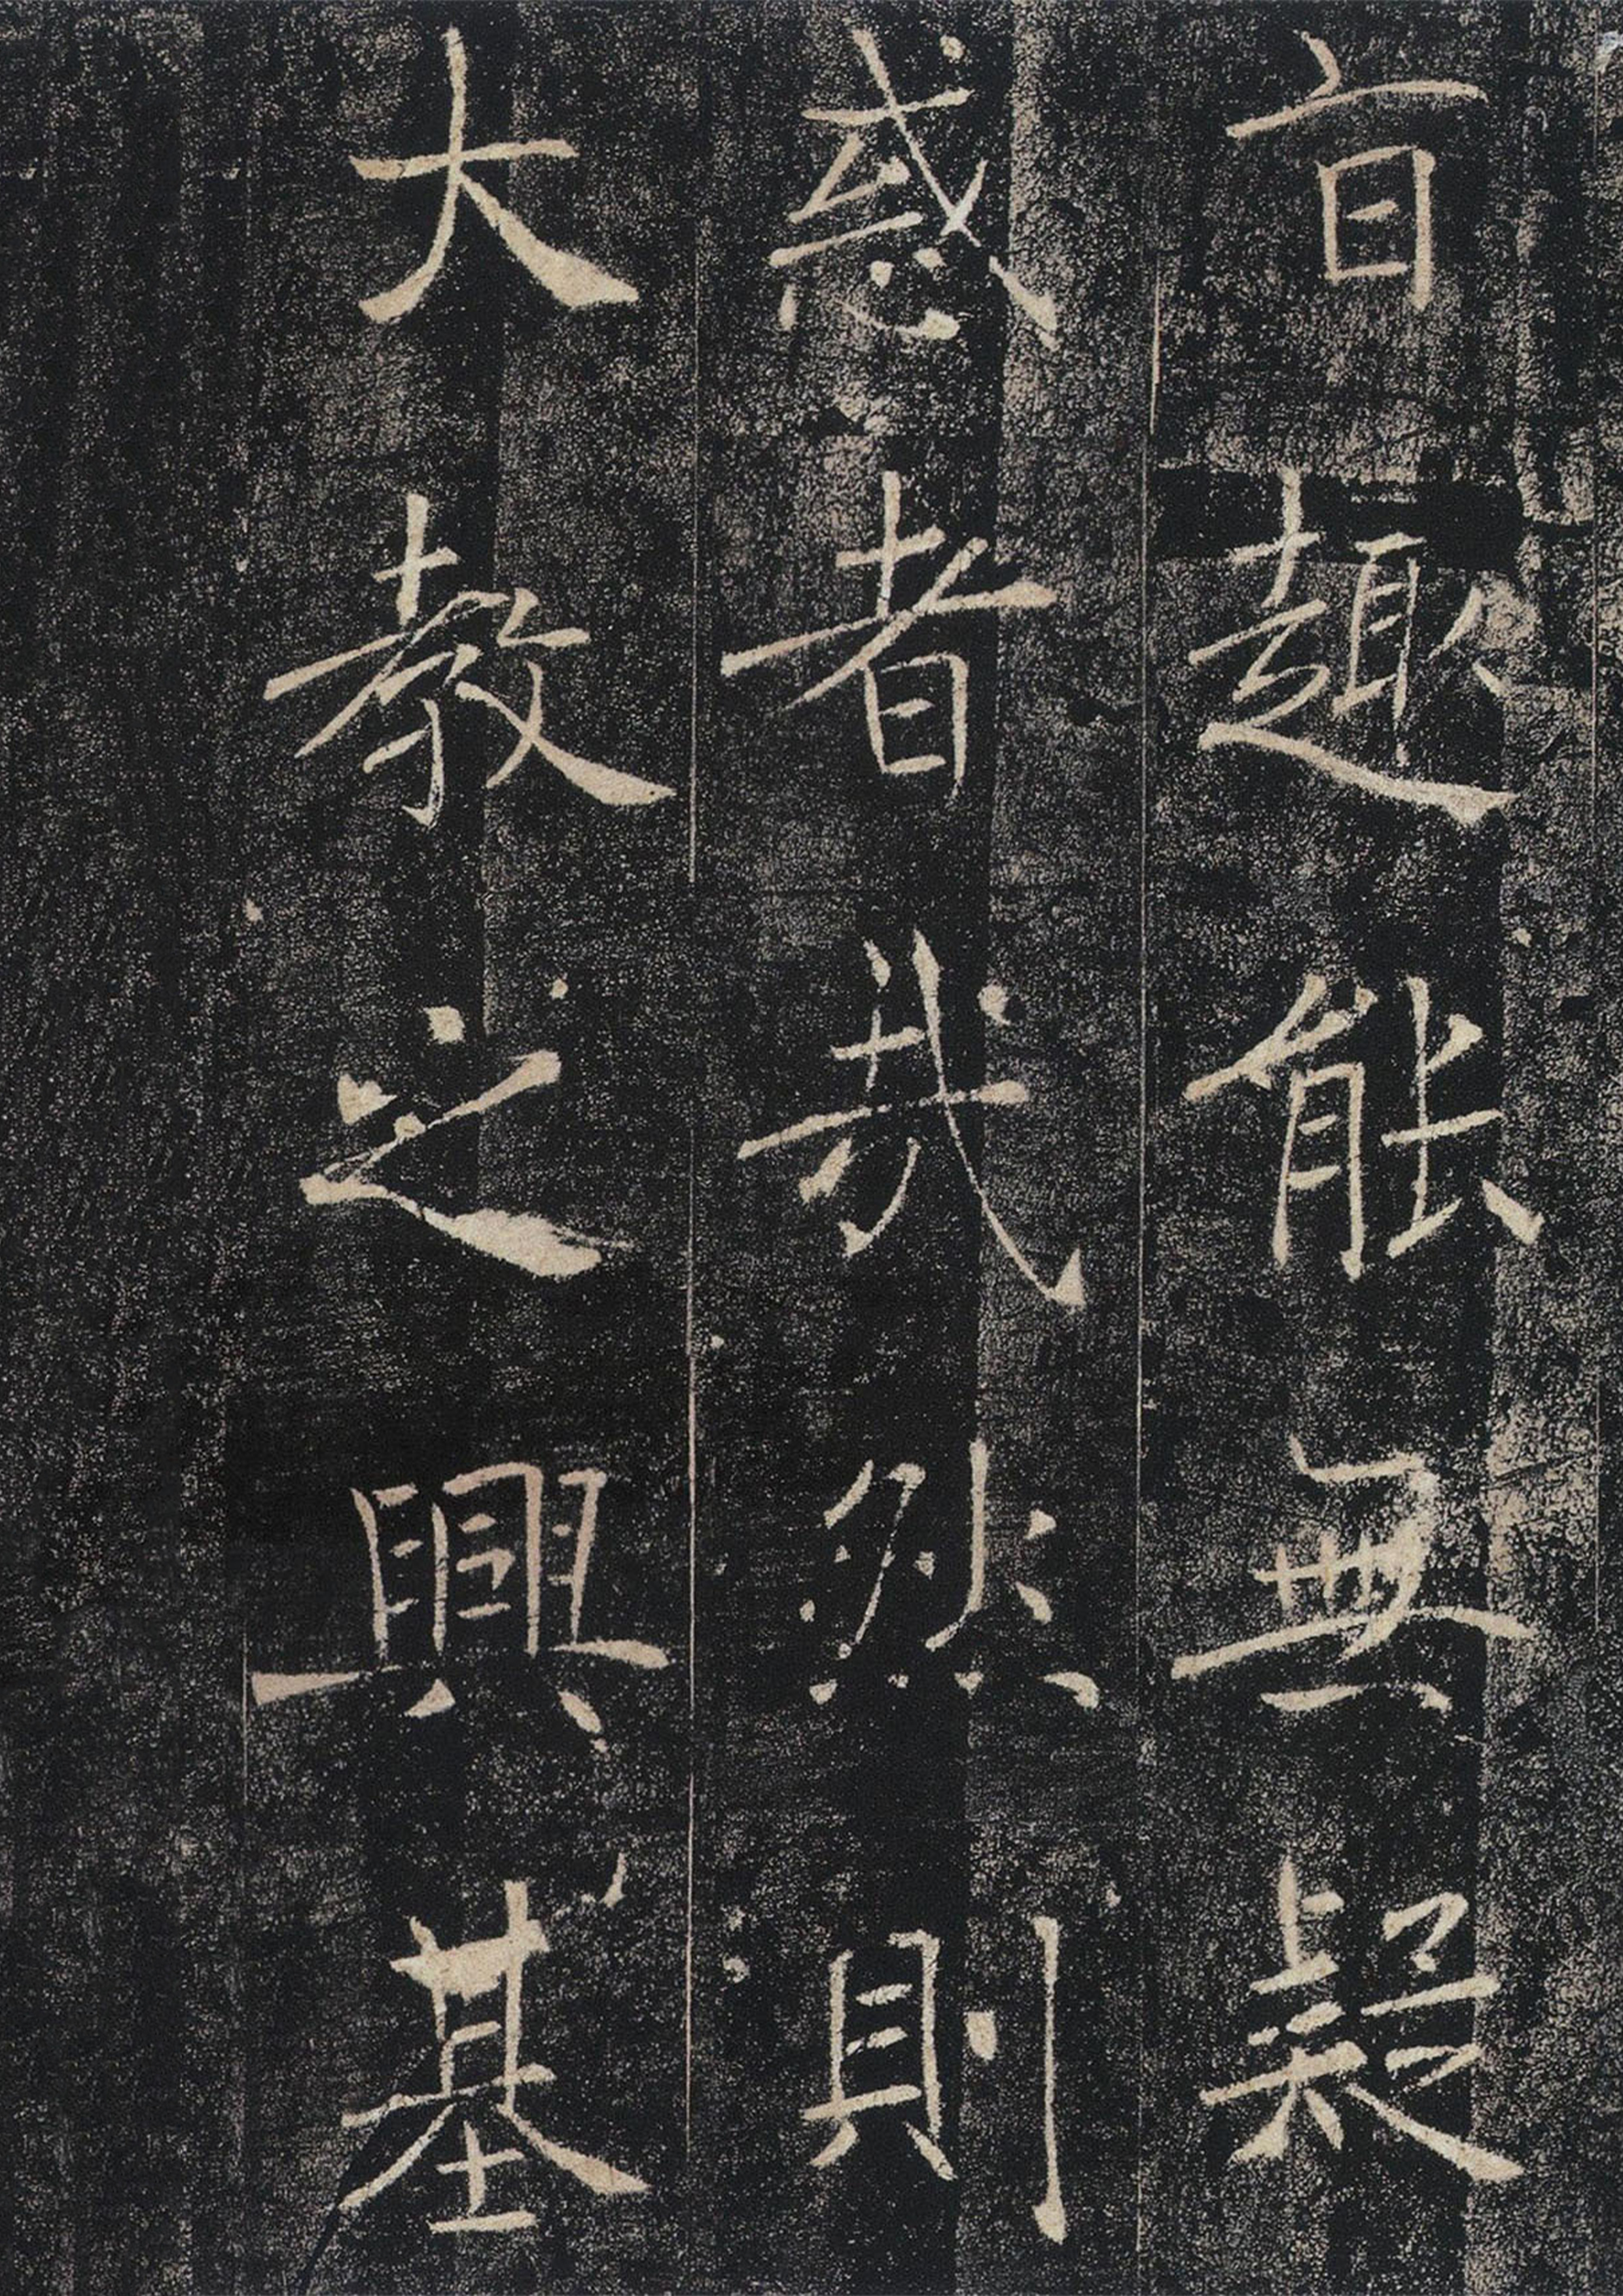 旨趣能無疑
惑者哉然則
大教之興基